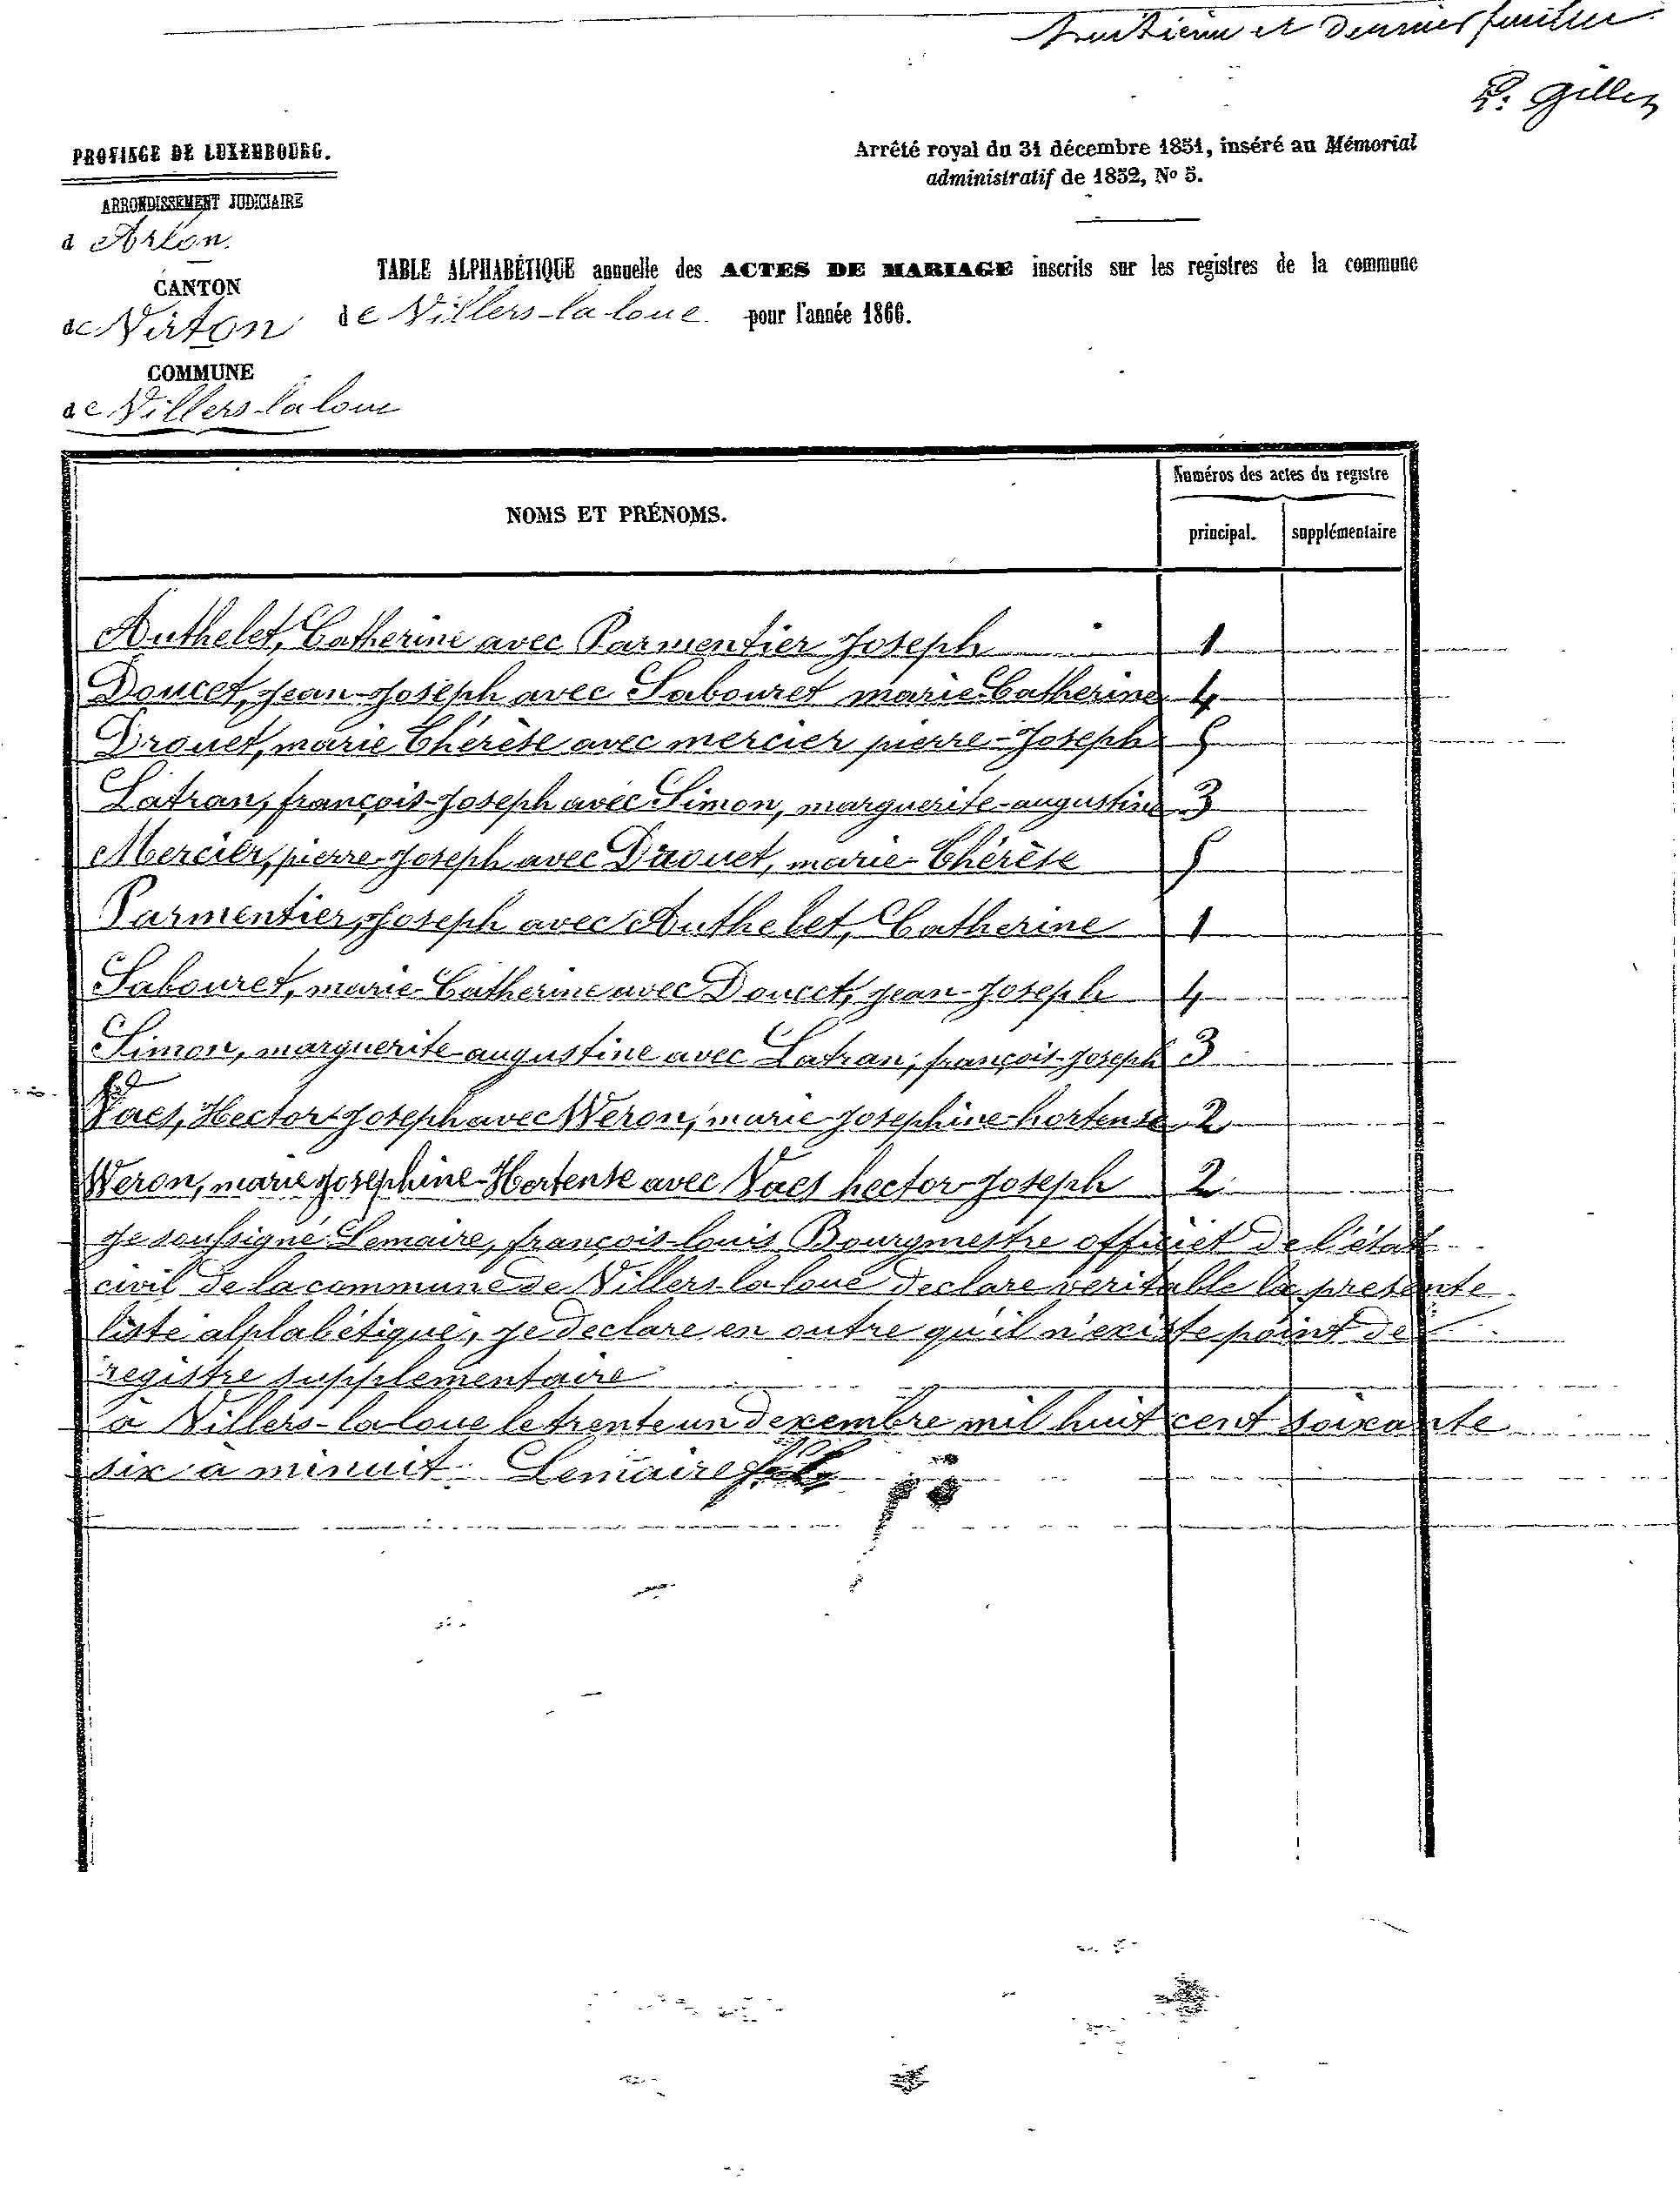 huitième et dernier feuillet
P. Gillez
PROVINCE DE LUXEMBOURG.
Arrêté royal du 31 décembre 1851, inséré au Mémorial
administratif de 1852, No 5.
ARRONDISSEMENT JUDICIAIRE
d Arlon.
TABLE ALPHABÉTIQUE annuelle des ACTES DE MARIAGE inscrits sur les registres de la commune
CANTON
de Virton
de Villers-la-loue pour l'année 1866.
COMMUNE
de Villers-la loue
NOMS ET PRÉNOMS.
Numéros des actes du registre
principal. supplémentaire
Authelet, Catherine avec Parmentier Joseph 1
Doucet, jean-Joseph avec Sabouret marie Catherine 4
Drouet, marie Thérèse avec mercier pierre-Joseph 5
Latran, françois-Joseph avec Simon, marguerite-augustine 3
Mercier, pierre-Joseph avec Drouet, marie-Thérèse 5
Parmentier, Joseph avec Authelet, Catherine 1
Sabouret, marie-Catherine avec Doucet, jean-Joseph 4
Simon, marguerite-augustine avec Latran, françois-Joseph 3
Vaes, Hector-Joseph avec Weron, marie-Josephine-hortense 2
Weron, marie Josephine-Hortense avec Vaes hector-Joseph 2
Je soussigné Lemaire, françois-louis Bourgmestre officiet de l'état
civil de la commune de Villers-la loue declare veritable la presente
liste alplabétique, je declare en outre qu'il n'existe point de
registre supplementaire
à Villers-la-loue le trente un dexembre mil huit cent soixante
six à minuit Lemaire